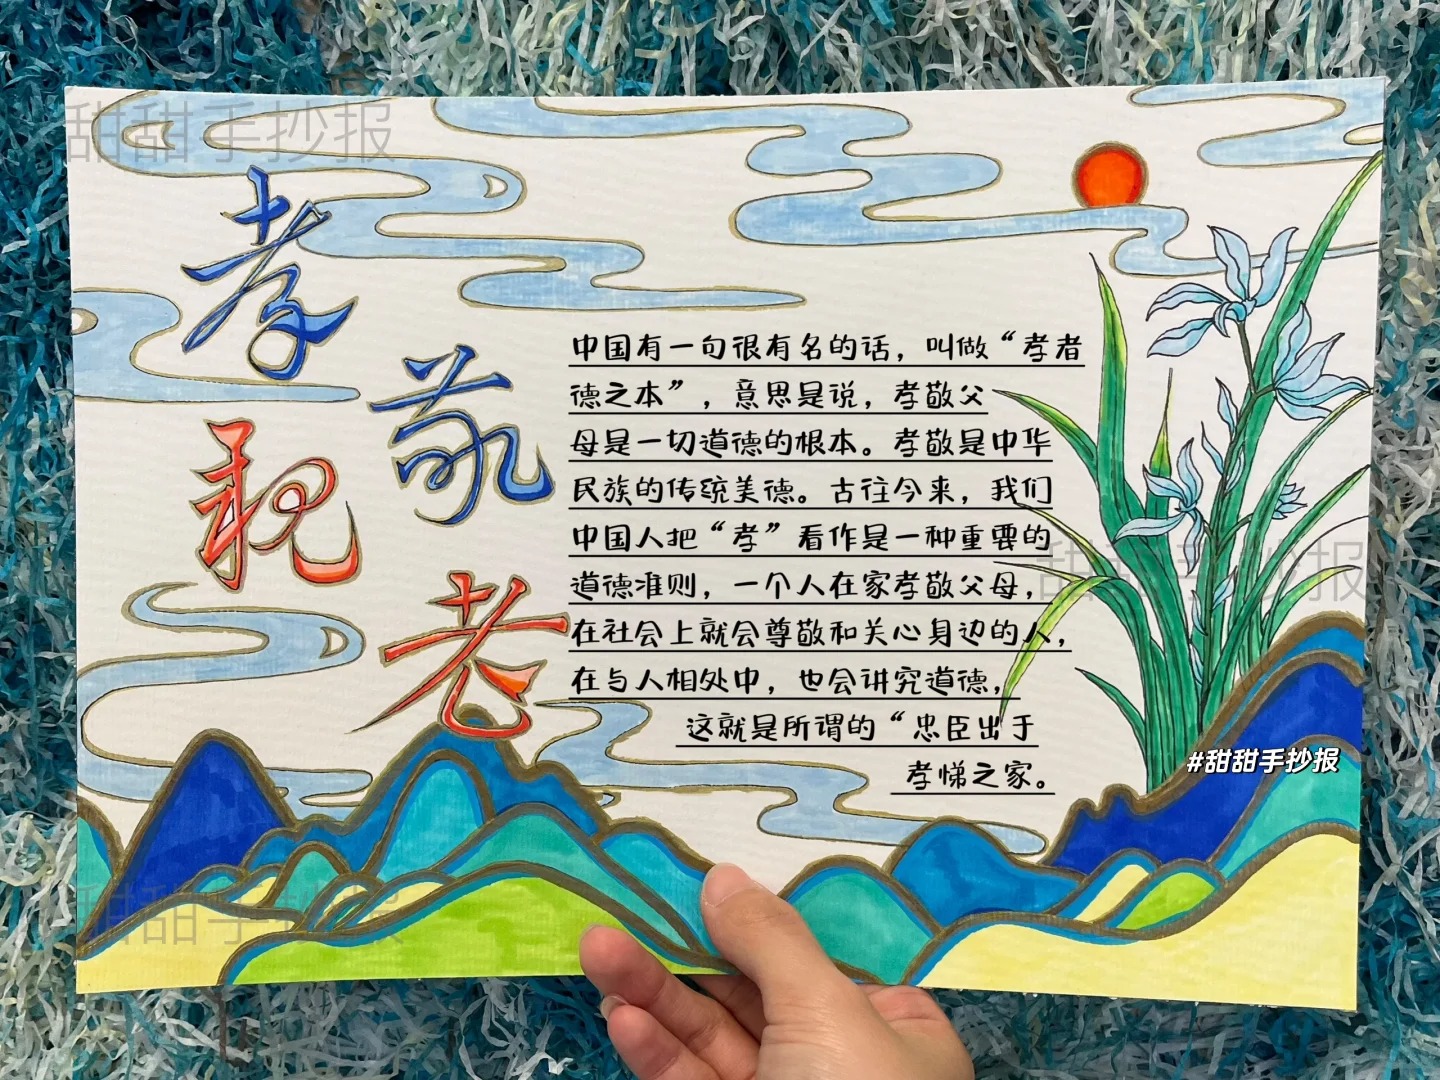 甜甜手抄报
孝敬
亲老
中国有一句很有名的话，叫做“孝者
德之本”，意思是说，孝敬父
母是一切道德的根本。孝敬是中华
民族的传统美德。古往今来，我们
中国人把“孝”看作是一种重要的
道德准则，一个人在家孝敬父母，
在社会上就会尊敬和关心身边的人，
在与人相处中，也会讲究道德，
这就是所谓的“忠臣出于
孝悌之家。
甜甜手抄报
#甜甜手抄报
甜甜手抄报